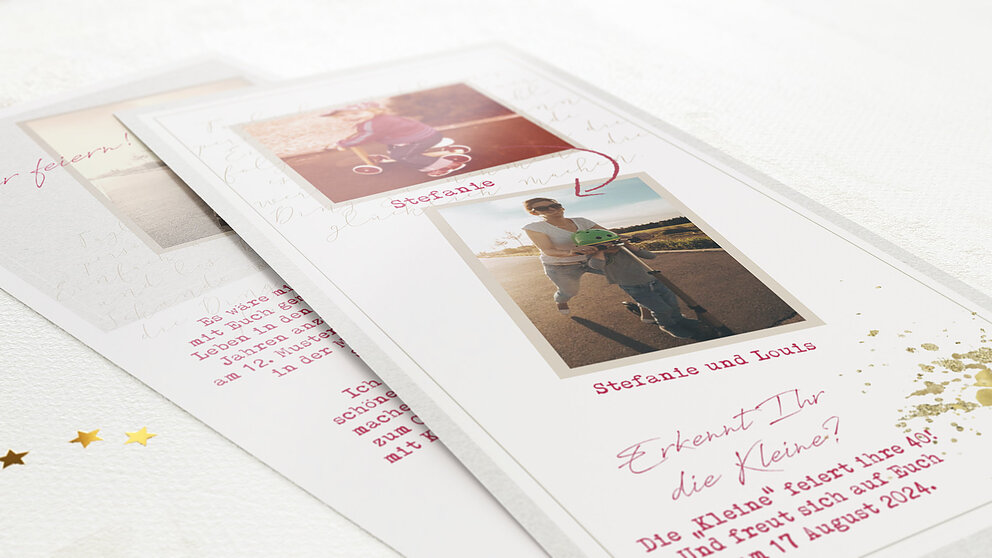 r feiern!
Es wäre mi
mit Euch gem
Leben in den
Jahren anz
am 12. Muster
in der M
Ich
schöne
mache
zum G
mit K
Stefanie
Stefanie und Louis
Erkennt Ihr
die Kleine?
Die "Kleine" feiert ihre 40!
Und freut sich auf Euch
m 17 August 2024.